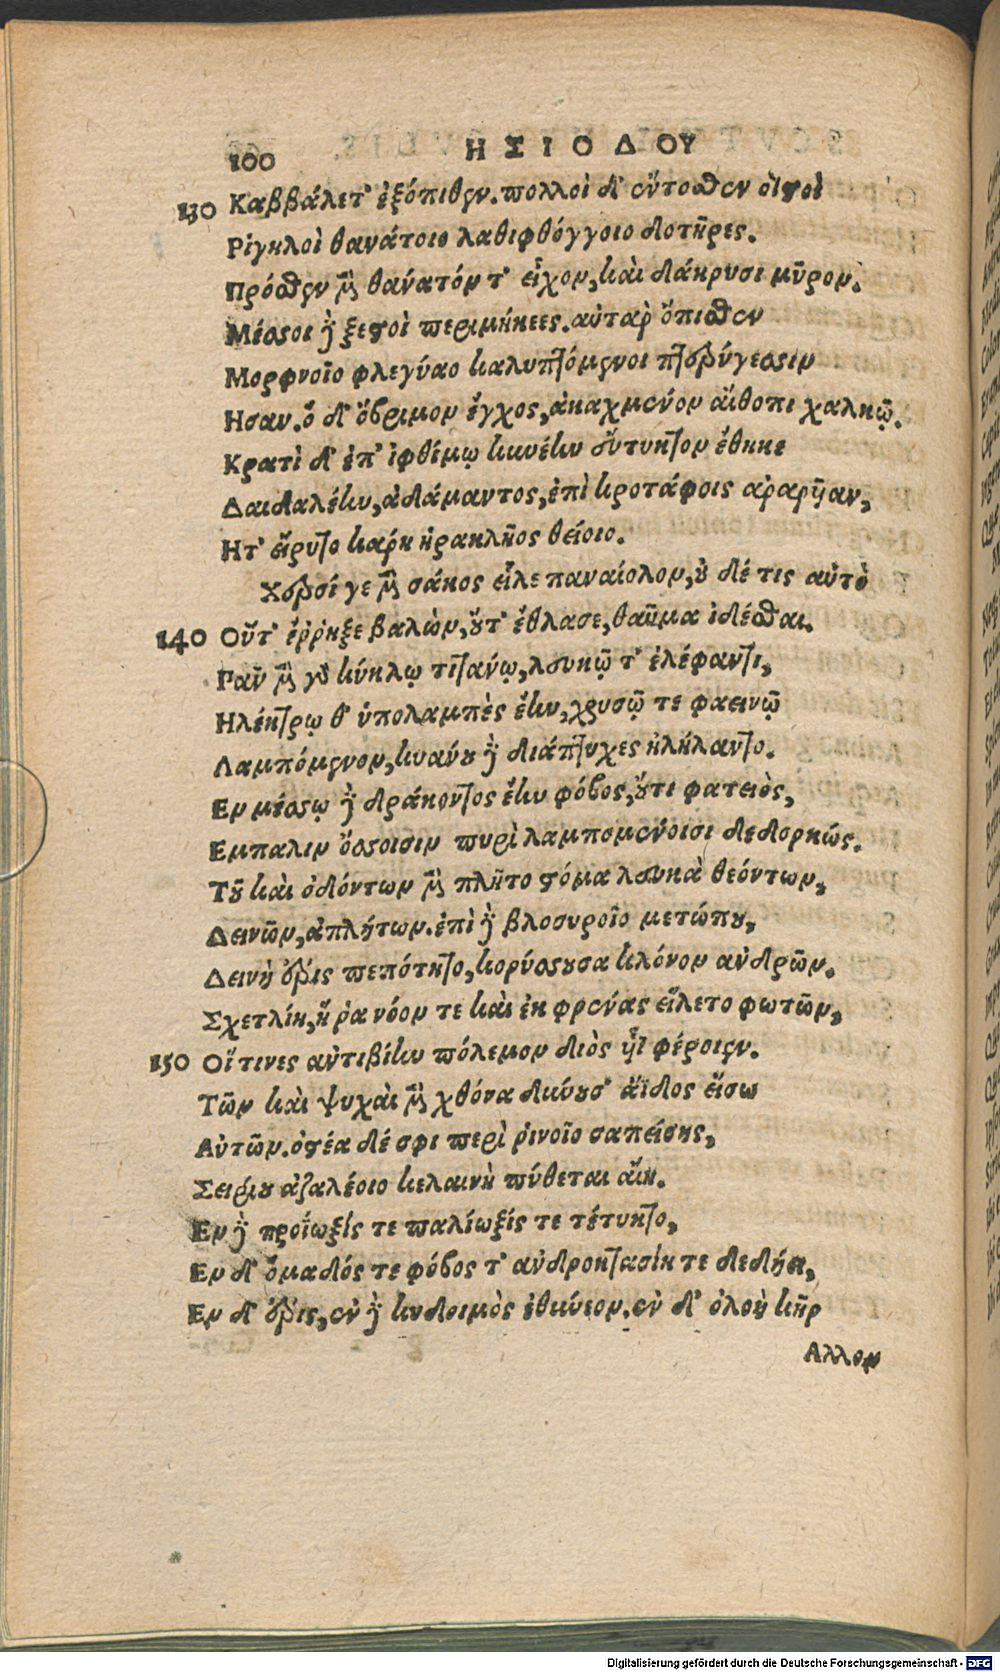 100 ΗΣΙΟΔΟΥ
130 Καββάλετ' ἐξόπιθεν. πολλοὶ δ' ἔντοσθεν ὀϊστοὶ
Ρἱγηλοὶ θανάτοιο λαθιφθόγγοιο δοτῆρες.
Πρόσθεν μὲν θάνατόν τ' εἶχον, καὶ δάκρυσι μῦρον.
Μέσσοι δὲ ξεστοὶ περιμήκεες. αὐτὰρ ὄπισθεν
Μορφνοῖο φλεγύαο καλυπτόμενοι πτερύγεσσιν
Ησαν. ὃ δ' ὄβριμον ἔγχος, ἀκαχμένον αἴθοπι χαλκῷ.
Κρατὶ δ' ἐπ' ἰφθίμῳ κυνέην εὔτυκτον ἔθηκε
Δαιδαλέην, ἀδάμαντος, ἐπὶ κροτάφοις ἀραρῆαν,
Ητ' εἴρυτο κάρη ἡρακλῆος θείοιο.
Χερσί γε μὲν σάκος εἷλε παναίολον, οὐδέ τις αὐτὸ
140 Οὔτ' ἔρρηξε βαλὼν, οὔτ' ἔθλασε, θαῦμα ἰδέσθαι.
Γᾶν μὲν γὰρ κύκλῳ τιτάνῳ, λευκῷ τ' ἐλέφαντι,
Ηλέκτρῳ θ' ὑπολαμπὲς ἔην, χρυσῷ τε φαεινῷ
Λαμπόμενον, κυάνου δὲ διάπτυχες ἠλήλαντο.
Εν μέσσῳ δὲ δράκοντος ἔην φόβος, οὔτι φατειὸς,
Εμπαλιν ὄσσοισιν πυρὶ λαμπομένοισι δεδορκώς.
Τοῦ καὶ ὀδόντων μὲν πλῆτο στόμα λευκὰ θεόντων,
Δεινῶν, ἀπλήτων. ἐπὶ δὲ βλοσυροῖο μετώπου,
Δεινὴ ἔρις πεπότητο, κορύσσουσα κλόνον ἀνδρῶν.
Σχετλίη, ἥ ῥα νόον τε καὶ ἐκ φρένας εἵλετο φωτῶν,
150 Οἵτινες ἀντιβίην πόλεμον διὸς ὑῖϊ φέροιεν.
Τῶν καὶ ψυχαὶ μὲν χθόνα δύνουσ' ἄϊδος εἴσω
Αὐτῶν. ὀστέα δέ σφι περὶ ῥινοῖο σαπείσης,
Σειρίου ἀζαλέοιο κελαινῇ πύθεται αἴῃ.
Εν δὲ προΐωξίς τε παλίωξίς τε τέτυκτο,
Εν δ' ὅμαδός τε φόβος τ' ἀνδροκτασίη τε δεδήει,
Εν δ' ἔρις, ἐν δὲ κυδοιμὸς ἐθύνεον. ἐν δ' ὀλοὴ κὴρ
Αλλον
Digitalisierung gefördert durch die Deutsche Forschungsgemeinschaft - DFG